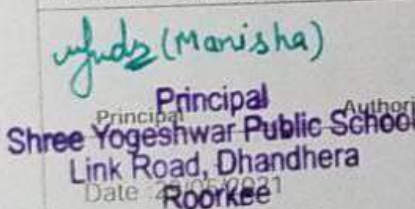 (Manisha)
Principal
Principal
Authori
Shree Yogeshwar Public School
Link Road, Dhandhera
Date :
Roorkee